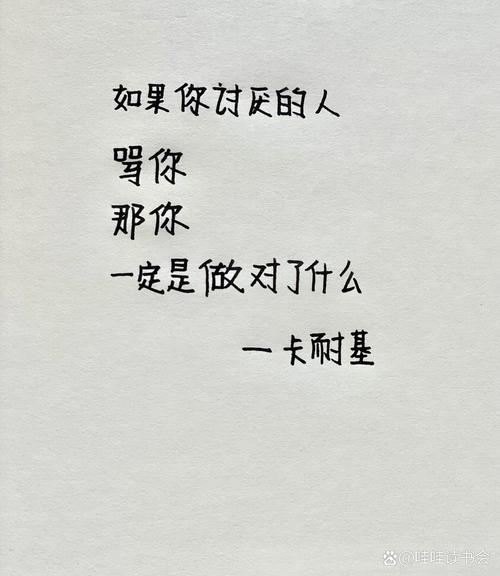 如果你讨厌的人
骂你
那你
一定是做对了什么
一卡耐基
哇哇读书会